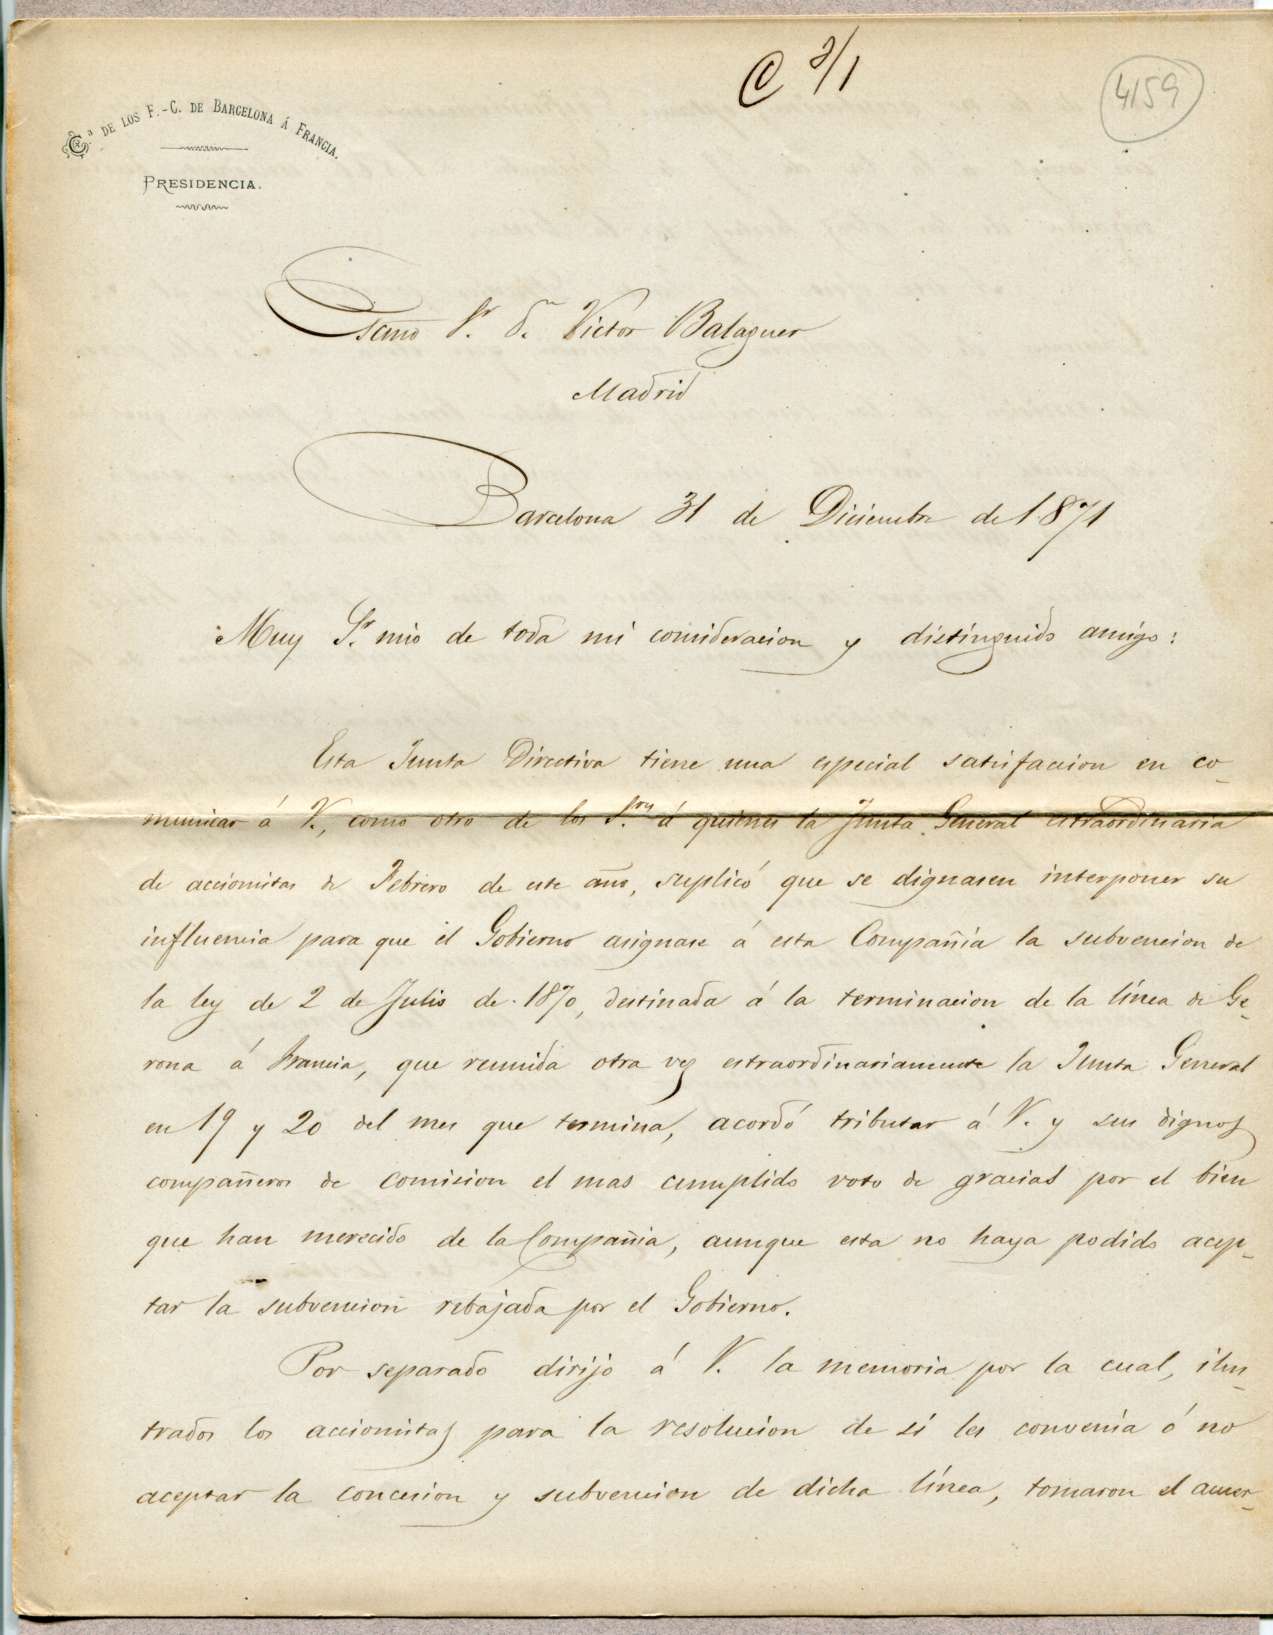 C 3/1
4159
C.ª DE LOS F.-C. DE BARCELONA Á FRANCIA.
PRESIDENCIA.
Escmo Sr. Dn. Victor Balaguer
Madrid
Barcelona 31 de Diciembre de 1871
Muy Sr. mio de toda mi consideracion y distinguido amigo:
Esta Junta Directiva tiene una especial satisfaccion en co-
municar á V., como otro de los Sres. á quienes la Junta General estraordinaria
de accionistas de Febrero de este año, suplicó que se dignasen interponer su
influencia para que el Gobierno asignase á esta Compañía la subvencion de
la ley de 2 de Julio de 1870, destinada á la terminacion de la línea de Ge-
rona á Francia, que reunida otra vez estraordinariamente la Junta General
en 19 y 20 del mes que termina, acordó tributar á V. y sus dignos
compañeros de comision el mas cumplido voto de gracias por el bien
que han merecido de la Compañia, aunque esta no haya podido acep-
tar la subvencion rebajada por el Gobierno.
Por separado dirijo á V. la memoria por la cual, ilus-
trados los accionistas para la resolucion de si les convenia ó no
aceptar la concesion y subvencion de dicha línea, tomaron el acuer-